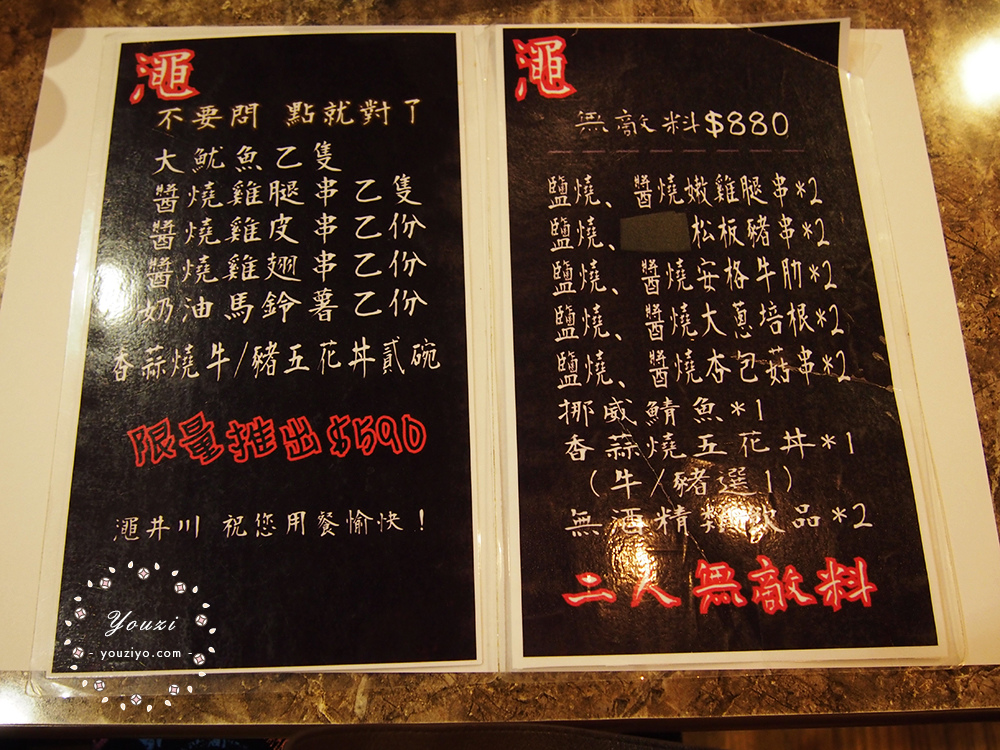 澠
不要問 點就對了
大魷魚乙隻
醬燒雞腿串乙隻
醬燒雞皮串乙份
醬燒雞翅串乙份
奶油馬鈴薯乙份
香蒜燒牛/豬五花丼貳碗
限量推出$590
澠井川 祝您用餐愉快!
Youzi
- youziyo.com -
澠
無敵料$880
鹽燒、醬燒嫩雞腿串*2
鹽燒、松板豬串*2
鹽燒、醬燒安格牛肋*2
鹽燒、醬燒大蔥培根*2
鹽燒、醬燒杏包菇串*2
挪威鯖魚*1
香蒜燒五花丼*1
(牛/豬選1)
無酒精類飲品*2
二人無敵料